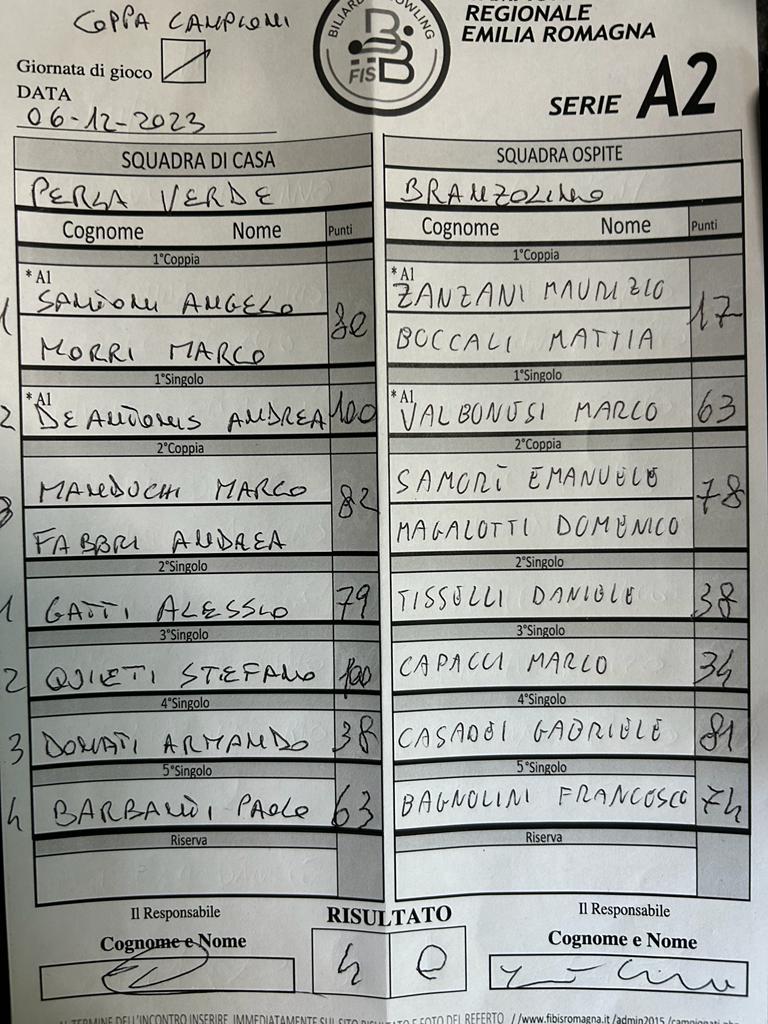 COPPA CAMPIONI
REGIONALE
EMILIA ROMAGNA
BILIARDO BOWLING
FISBB
Giornata di gioco
DATA
06-12-2023
SERIE A2
SQUADRA DI CASA SQUADRA OSPITE
PERLA VERDE BRANZOLINO
Cognome Nome Punti Cognome Nome Punti
1°Coppia 1°Coppia
*A1 *A1
1 SANTONI ANGELO 80 ZANZANI MAURIZIO 17
MORRI MARCO BOCCALI MATTIA
1°Singolo 1°Singolo
*A1 *A1
2 DE ANTONIS ANDREA 100 VALBONUSI MARCO 63
2°Coppia 2°Coppia
3 MANDUCHI MARCO 82 SAMORÌ EMANUELE 78
FABBRI ANDREA MAGALOTTI DOMENICO
2°Singolo 2°Singolo
1 GATTI ALESSIO 79 TISSELLI DANIELE 38
3°Singolo 3°Singolo
2 QUIETI STEFANO 100 CAPACCI MARCO 34
4°Singolo 4°Singolo
3 DONATI ARMANDO 38 CASADEI GABRIELE 81
5°Singolo 5°Singolo
4 BARBANTI PAOLO 63 BAGNOLINI FRANCESCO 74
Riserva Riserva
Il Responsabile RISULTATO Il Responsabile
Cognome e Nome Cognome e Nome
4 0
TERMINE DELL'INCONTRO INSERIRE IMMEDIATAMENTE SUL SITO RISULTATO E FOTO DEL REFERTO //www.fibisromagna.it/admin2015/